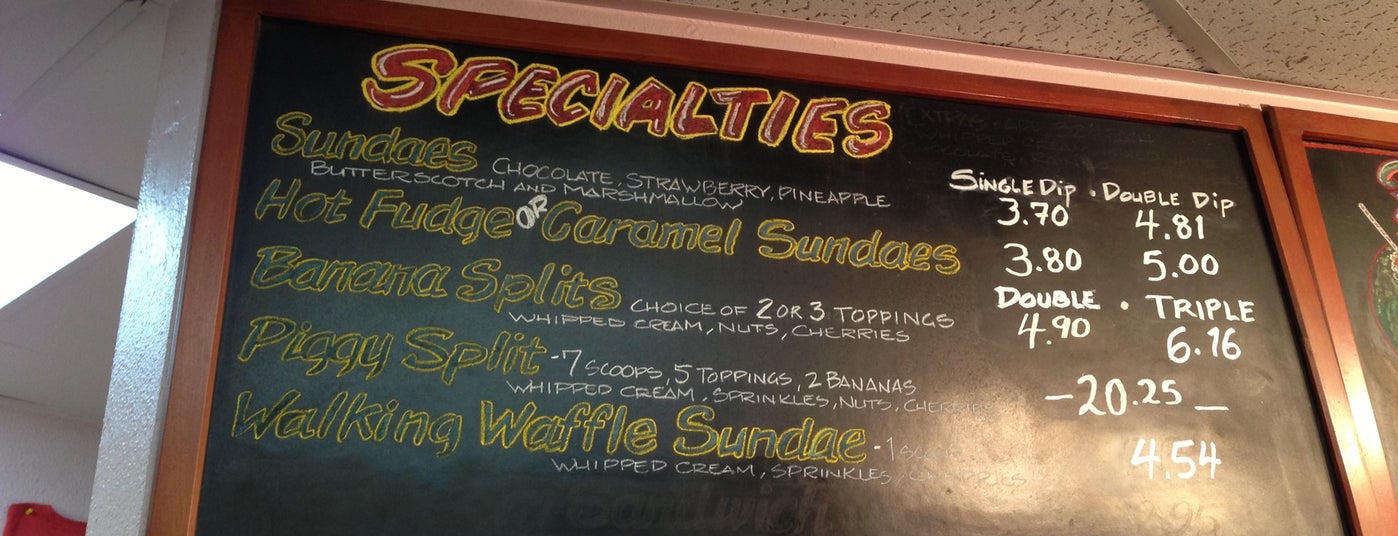 SPECIALTIES
Sundaes CHOCOLATE, STRAWBERRY, PINEAPPLE
BUTTERSCOTCH AND MARSHMALLOW
SINGLE DIP • DOUBLE DIP
3.70 4.81
Hot Fudge OR Caramel Sundaes 3.80 5.00
Banana Splits CHOICE OF 2 OR 3 TOPPINGS
WHIPPED CREAM, NUTS, CHERRIES
DOUBLE • TRIPLE
4.90 6.16
Piggy Split - 7 SCOOPS, 5 TOPPINGS, 2 BANANAS
WHIPPED CREAM, SPRINKLES, NUTS, CHERRIES
- 20.25 -
Walking Waffle Sundae - 1 4.54
WHIPPED CREAM, SPRINKLES,
Sandwich